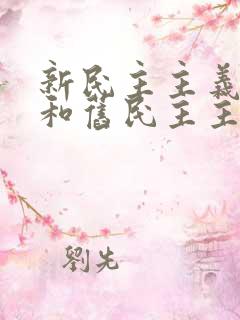 新民主主義
和舊民主主
劉先